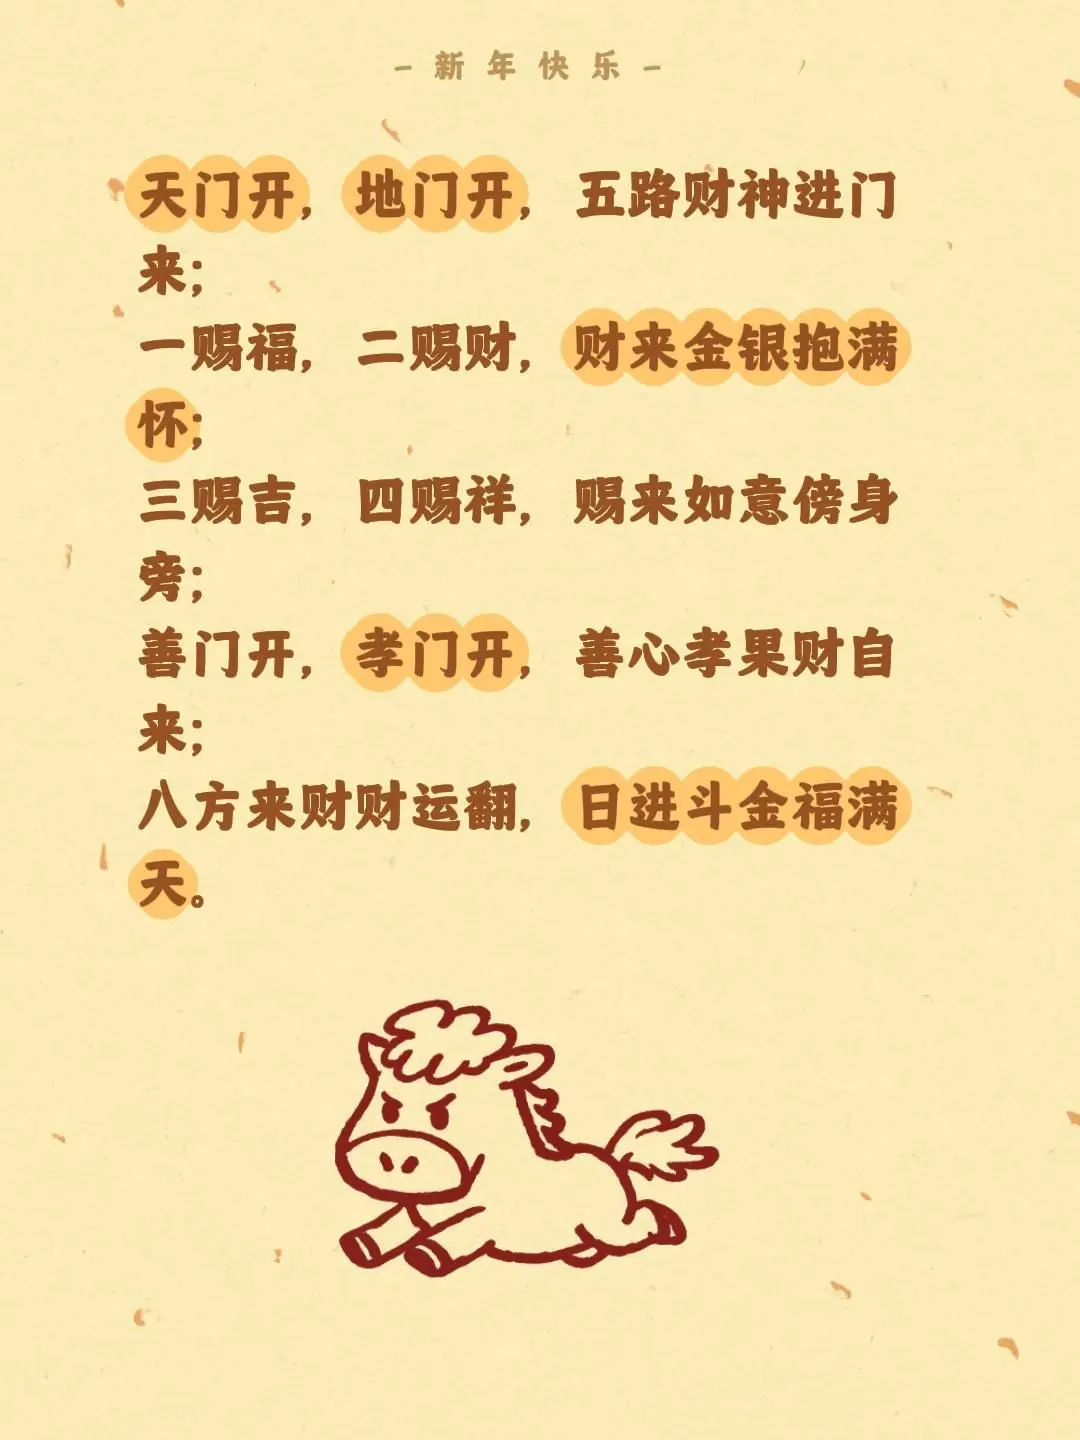 - 新年快乐 -
天门开，地门开，五路财神进门
来；
一赐福，二赐财，财来金银抱满
怀；
三赐吉，四赐祥，赐来如意傍身
旁；
善门开，孝门开，善心孝果财自
来；
八方来财财运翻，日进斗金福满
天。